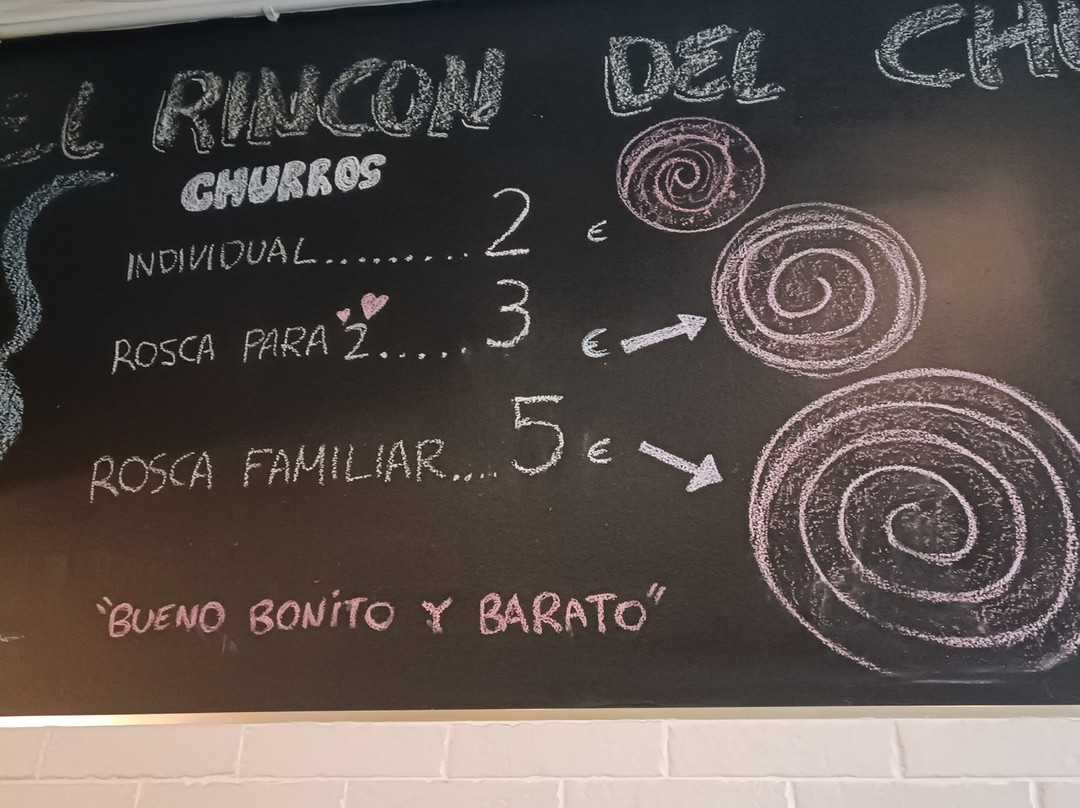 EL RINCON DEL CHU
CHURROS
INDIVIDUAL.......... 2 €
ROSCA PARA 2...... 3 €
ROSCA FAMILIAR.... 5 €
"BUENO BONiTO Y BARATO"